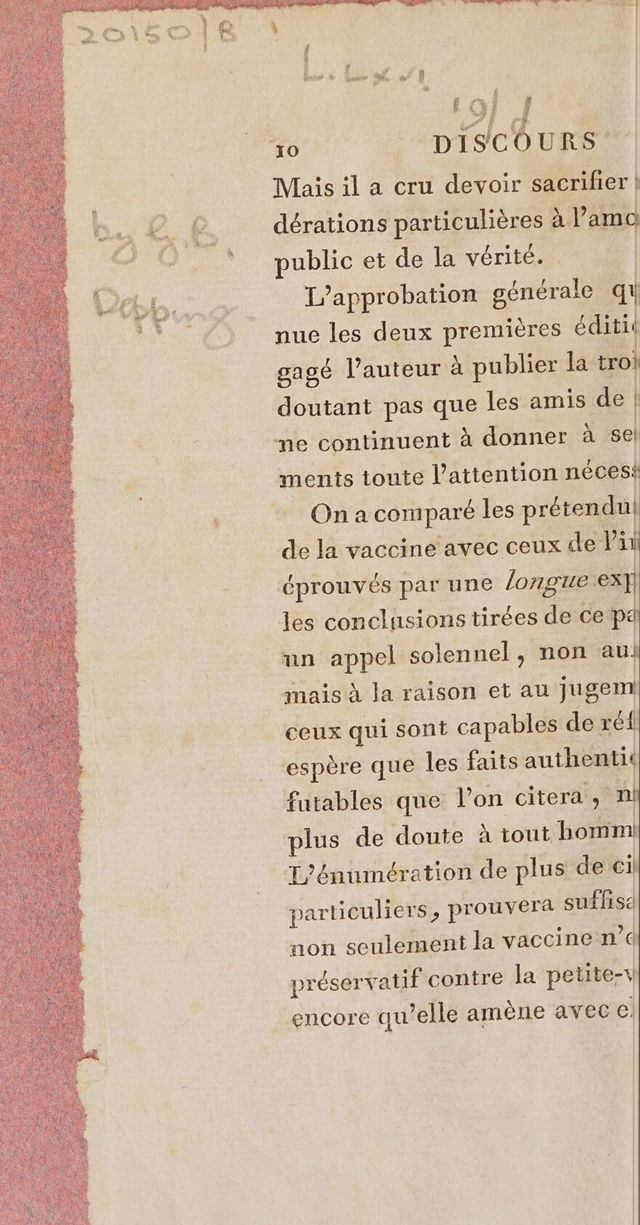 20150/B
L. Lxvi
19/d
10 DISCOURS
Mais il a cru devoir sacrifier
dérations particulières à l'amo
public et de la vérité.
by G.B.
Depping
L'approbation générale qu
nue les deux premières éditi
gagé l'auteur à publier la troi
doutant pas que les amis de
ne continuent à donner à se
ments toute l'attention nécess
On a comparé les prétendu
de la vaccine avec ceux de l'in
éprouvés par une longue exp
les conclusions tirées de ce pa
un appel solennel, non au
mais à la raison et au jugem
ceux qui sont capables de réf
espère que les faits authenti
futables que l'on citera, n
plus de doute à tout homm
L'énumération de plus de ci
particuliers, prouvera suffisa
non seulement la vaccine n'
préservatif contre la petite-v
encore qu'elle amène avec e